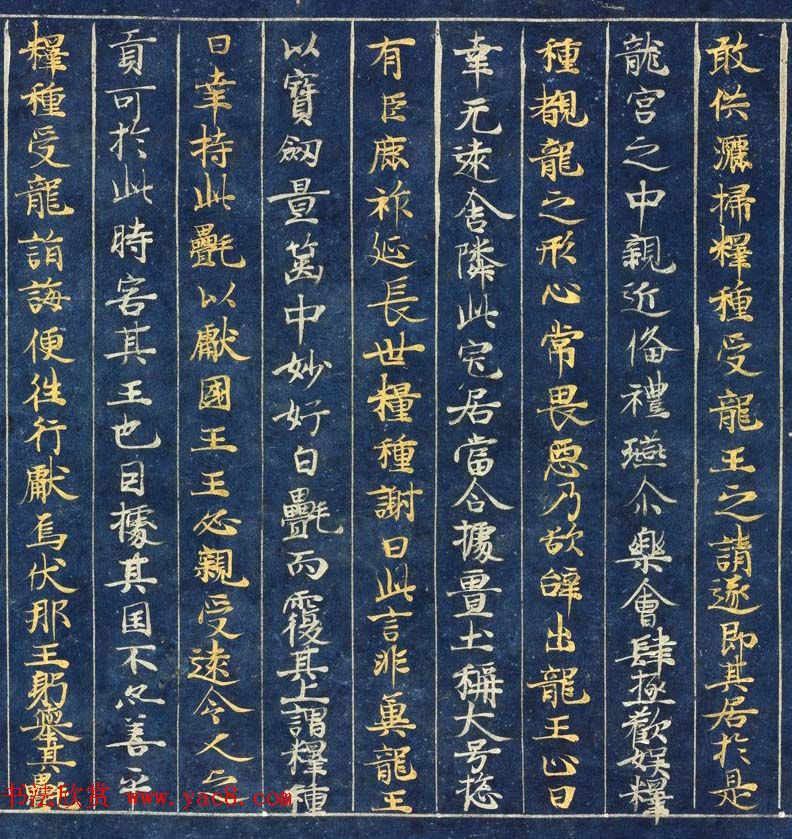 敢供灑掃釋種受龍王之請遂即其居於是
龍宮之中親近俻禮燕尒樂會肆極歡娛釋
種覩龍之形心常畏惡乃欲辞出龍王止曰
幸无遠舍隣此宅居當令據畺土稱大号揔
有臣庶祚延長世釋種謝曰此言非冀龍王
以寶劔置篋中妙好白㲲而覆其上謂釋種
曰幸持此㲲以獻國王王必親受遠人之
貢可於此時害其王也因據其国不亦善乎
釋種受龍指誨便往行獻烏伏那王躬舉其㲲
书法欣赏 www.yac8.com